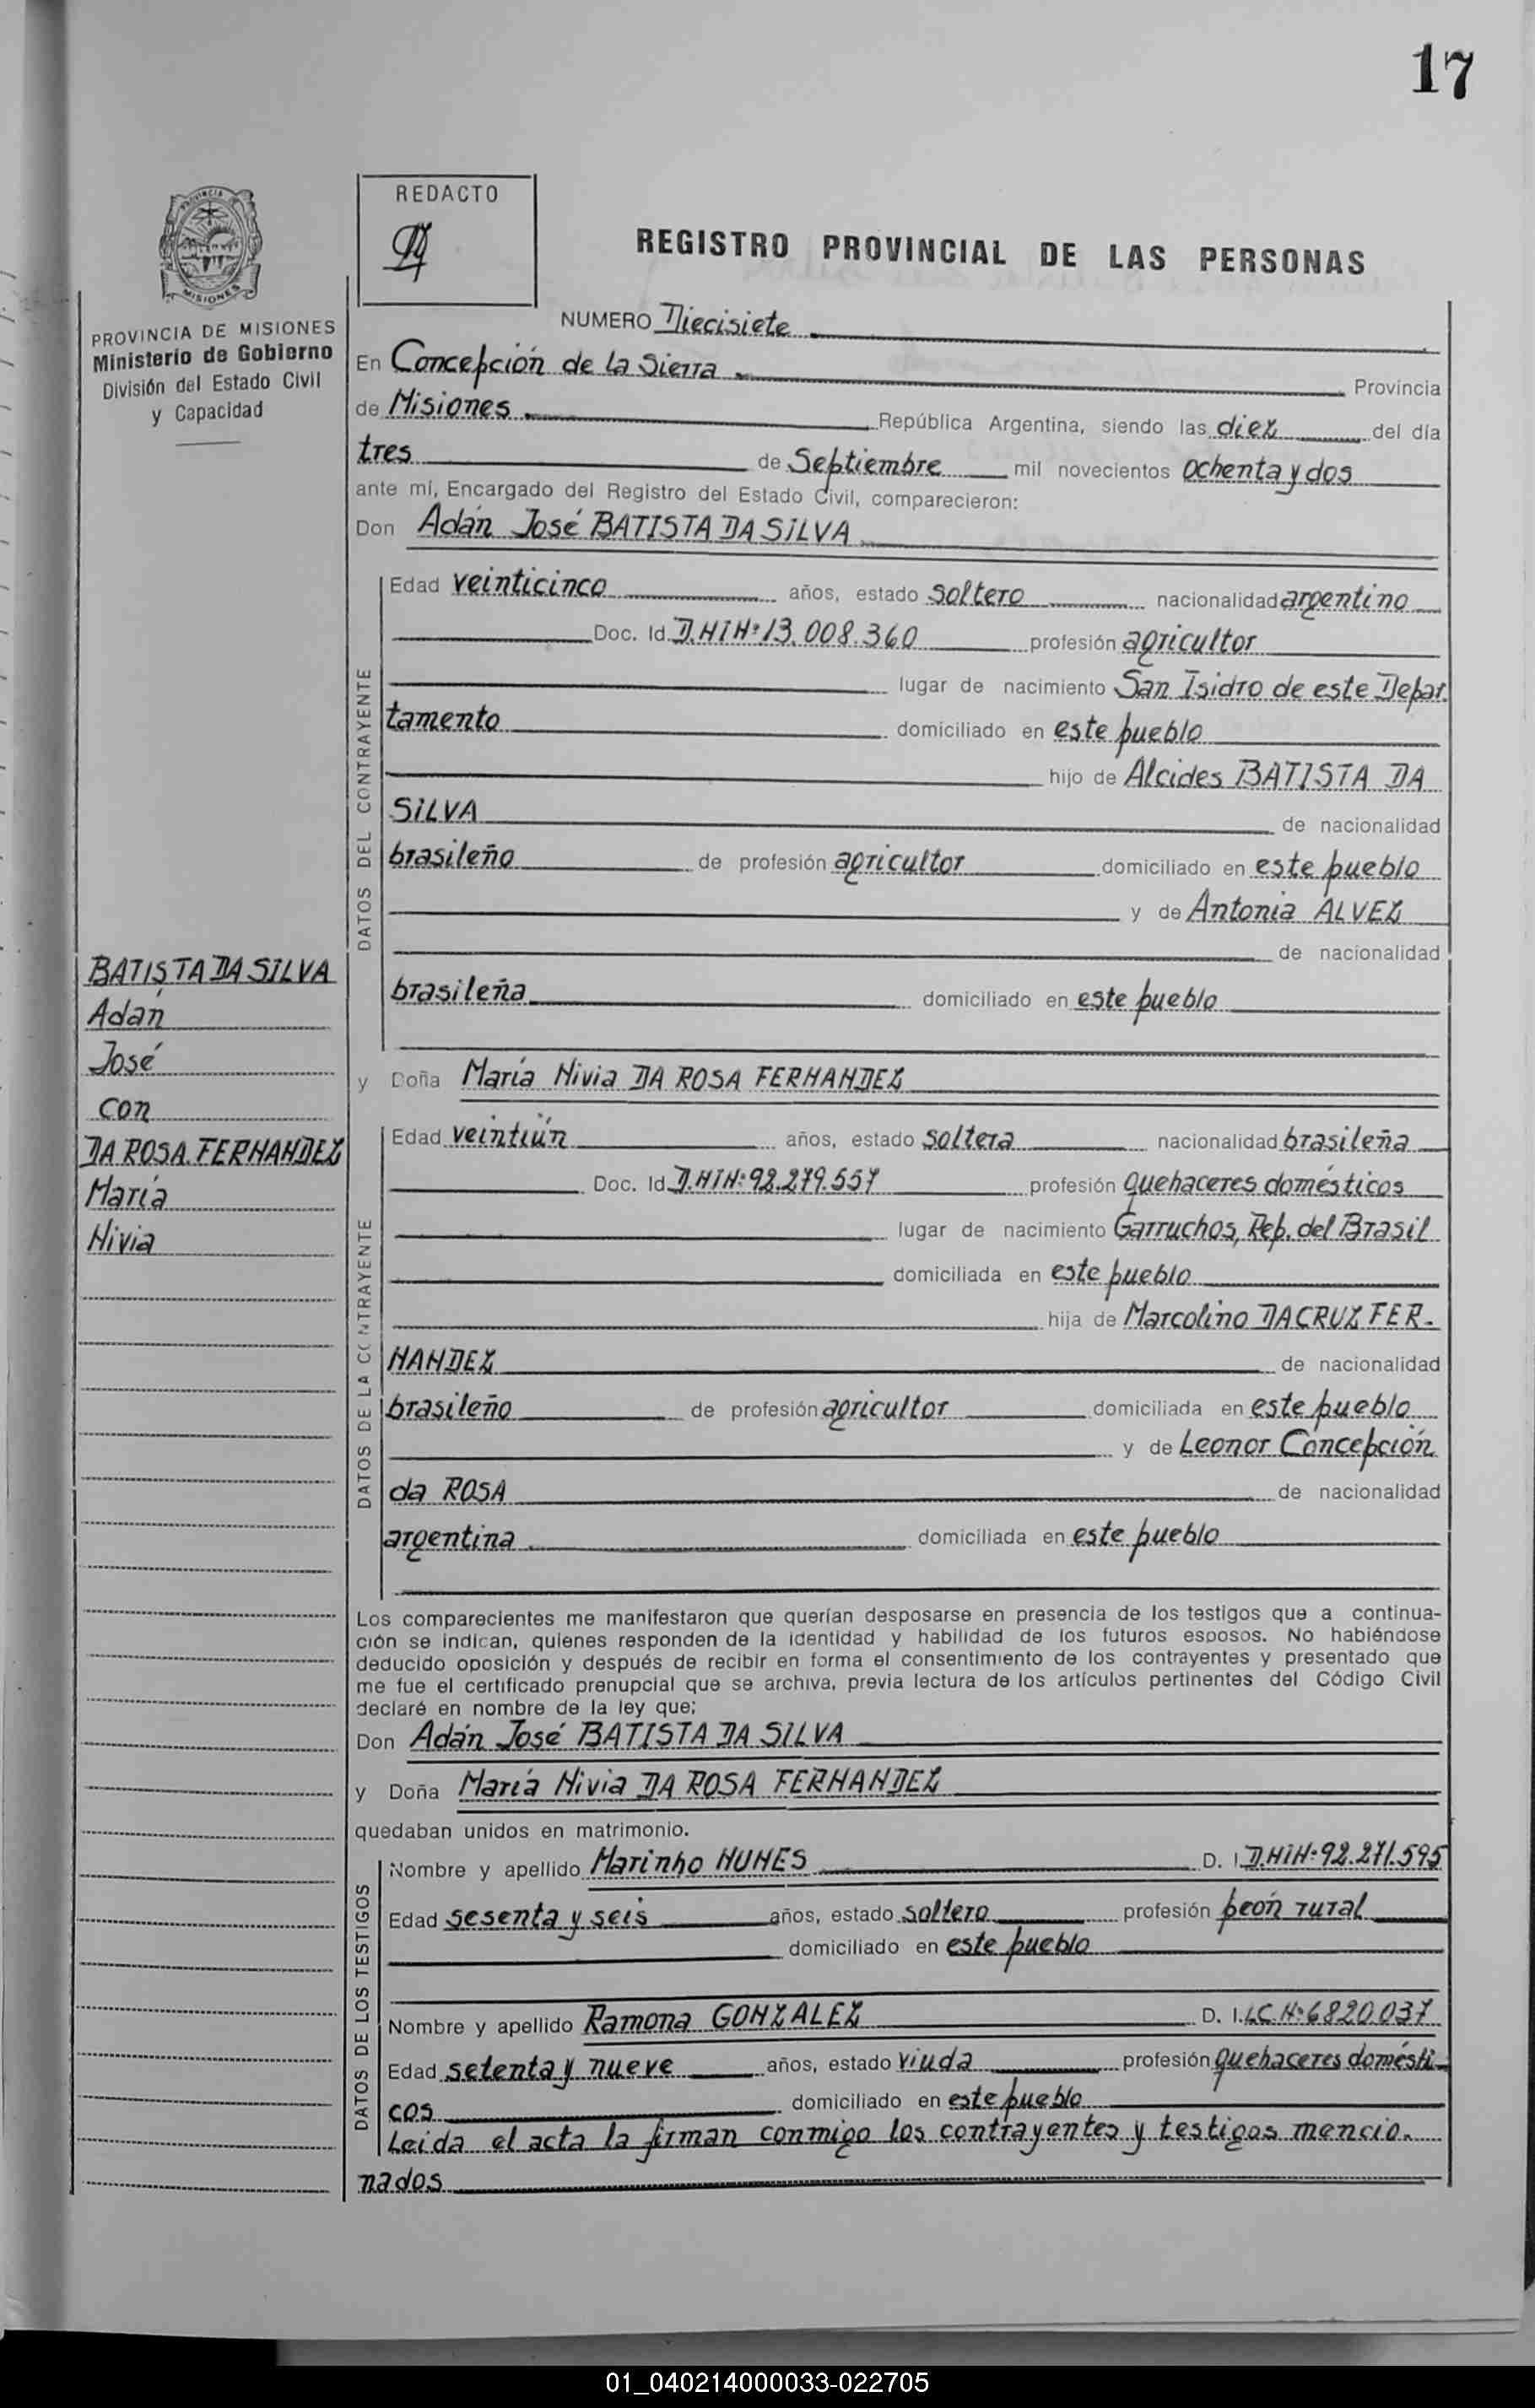 17
PROVINCIA DE
MISIONES
PROVINCIA DE MISIONES
Ministerio de Gobierno
División del Estado Civil
y Capacidad
REDACTO
REGISTRO PROVINCIAL DE LAS PERSONAS
NUMERO Diecisiete
En Concepción de la Sierra Provincia
de Misiones República Argentina, siendo las diez del día
tres de Septiembre mil novecientos ochenta y dos
ante mí, Encargado del Registro del Estado Civil, comparecieron:
Don Adán José BATISTA DA SILVA
DATOS DEL CONTRAYENTE
Edad veinticinco años, estado soltero nacionalidad argentino
Doc. Id. D.NIN:13.008.360 profesión agricultor
lugar de nacimiento San Isidro de este Depar.
tamento domiciliado en este pueblo
hijo de Alcides BATISTA DA
SILVA de nacionalidad
brasileño de profesión agricultor domiciliado en este pueblo
y de Antonia ALVEZ
de nacionalidad
brasileña domiciliado en este pueblo
BATISTA DA SILVA
Adán
José
con
DA ROSA FERNANDEZ
María
Nivia
y Doña María Nivia DA ROSA FERNANDEZ
DATOS DE LA CONTRAYENTE
Edad veintiún años, estado soltera nacionalidad brasileña
Doc. Id. D.NIN:92.279.557 profesión quehaceres domésticos
lugar de nacimiento Garruchos, Rep. del Brasil
domiciliada en este pueblo
hija de Marcolino DA CRUZ FER-
NANDEZ de nacionalidad
brasileño de profesión agricultor domiciliada en este pueblo
y de Leonor Concepción
da ROSA de nacionalidad
argentina domiciliada en este pueblo
Los comparecientes me manifestaron que querían desposarse en presencia de los testigos que a continua-
ción se indican, quienes responden de la identidad y habilidad de los futuros esposos. No habiéndose
deducido oposición y después de recibir en forma el consentimiento de los contrayentes y presentado que
me fue el certificado prenupcial que se archiva, previa lectura de los artículos pertinentes del Código Civil
declaré en nombre de la ley que:
Don Adán José BATISTA DA SILVA
y Doña María Nivia DA ROSA FERNANDEZ
quedaban unidos en matrimonio.
DATOS DE LOS TESTIGOS
Nombre y apellido Marinho NUNES D. I. D.NIN:92.271.595
Edad sesenta y seis años, estado soltero profesión peón rural
domiciliado en este pueblo
Nombre y apellido Ramona GONZALEZ D. I. LC.Nº6820.037
Edad setenta y nueve años, estado viuda profesión quehaceres domésti-
cos domiciliado en este pueblo
Leída el acta la firman conmigo los contrayentes y testigos mencio-
nados
01_040214000033-022705